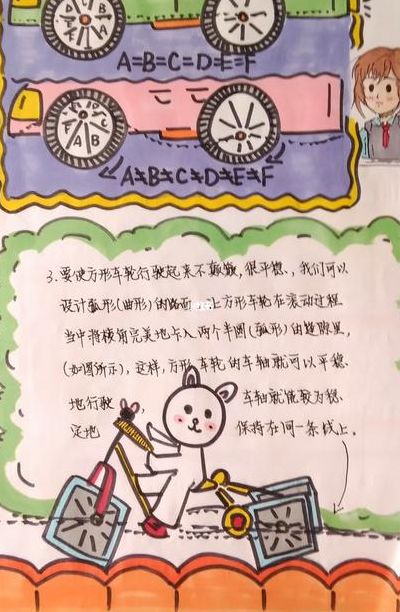 A=B=C=D=E=F
A≠B≠C≠D≠E≠F
3.要使方形车轮行驶起来不颠簸,很平稳,我们可以
设计弧形(曲形)的路面 上方形车轮在滚动过程
当中将棱角完美地卡入两个半圆(弧形)的缝隙里,
(如图所示),这样,方形车轮的车轴就可以平稳
地行驶, 车轴就能较为稳
定地 保持在同一条线上。